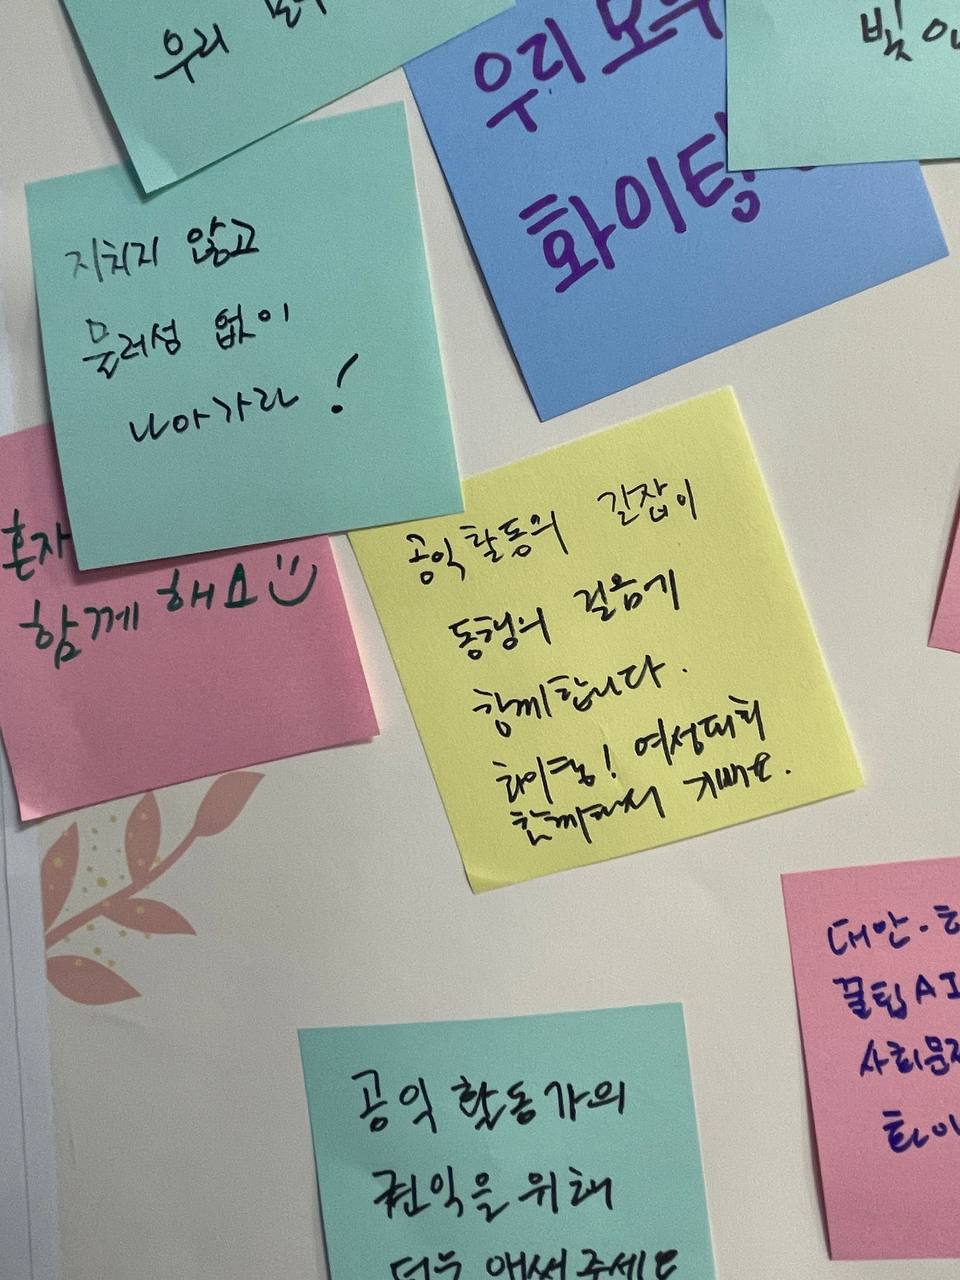 우리
우리 모두
화이팅!
빛
지치지 않고
물러섬 없이
나아가라!
혼자
함께 해요
공익활동의 길잡이
동행의 걸음에
함께합니다.
화이팅! 여성대회
함께해서 기뻐요.
대안·
꿀팁 AI
사회문제
화이
공익활동가의
권익을 위해
더욱 애써주세요